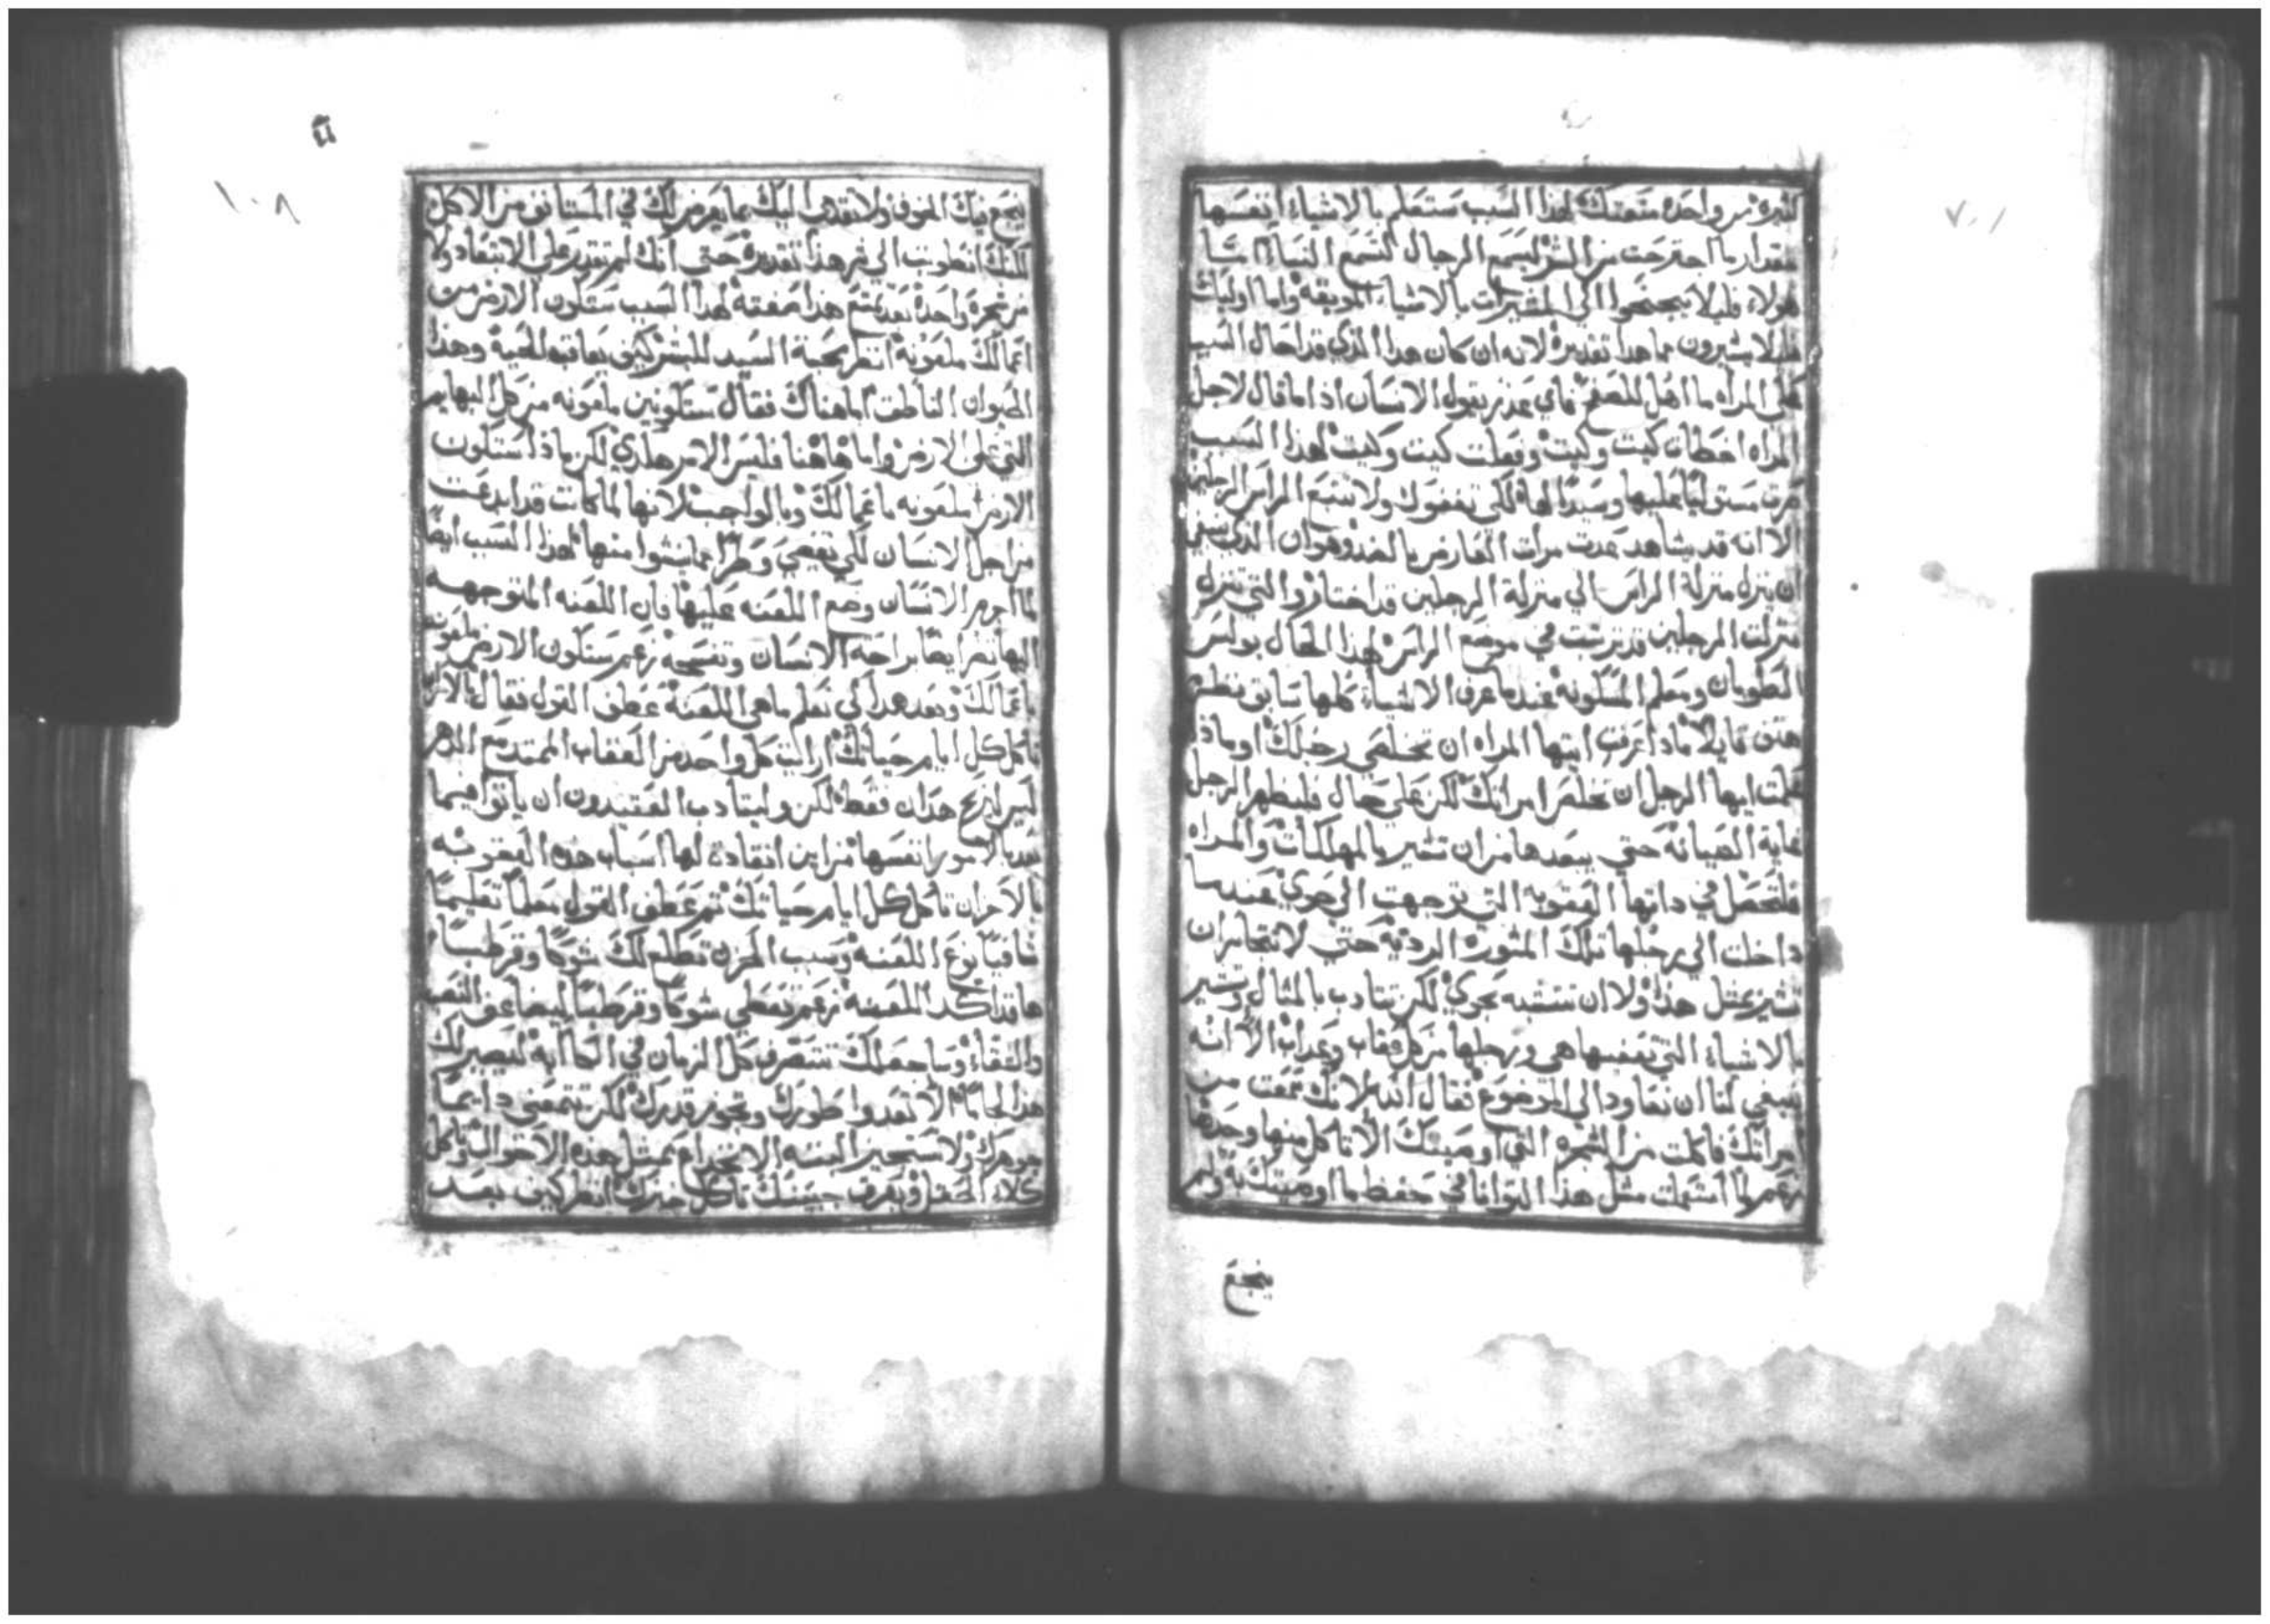 كثيره من واحده متعتك لهذا السبب ستعلم بالاشياء انفسها
مقدار ما اجترحت من الشر ليسمع الرجال لتسمع النساء اما
هولاء فليلا يجنحوا الي المشيرات بالاشياء الموبقه واما اوليك
فليلا يشيرون بما هذا تقديره لانه ان كان هذا الذي قد احال السبب
علي المراه ما اهل للصفح فاي عذر يقول الانسان اذا ما قال لاجل
المراه اخطات كيت وكيت وفعلت كيت وكيت لهذا السبب
صرت مستوليا عليها وسيدا لها لكي تقفوك ولا تتبع الراس الرجلين
الا انه قد يشاهد عدت مرات العارض بالضد وهو ان الذي ينبغي
ان ينزل منزلة الراس الي منزلة الرجلين قد اختار والتي تنزل
منزلت الرجلين قد ترتبت في موضع الراس لهذا الحال بولس
الطوبان ومعلم المسكونه عندما عرف الاشياء كلها سابق فنظر
هتف قايلا ماذا عرفت ايتها المراه ان تخلصي رجلك او ماذا
علمت ايها الرجل ان تخلص امراتك لكن علي حال فليظهر الرجل
غاية الصيانه حتي يبعدها من ان تشير بالمهلكات والمراه
فلتحصل في داتها العقوبه التي توجهت الي حوي عندما
داخلت الي رجلها تلك المشوره الرديه حتي لا تتجاسران
تشير بمثل هذا ولا ان تتشبه بحوي لكن تتادب بالمثال وتشير
بالاشياء التي تعفيها هي ورجلها من كل عقاب وعذاب الا انه
ينبغي لنا ان نعاود الي الموضوع فقال الله لانك سمعت من
امراتك فاكلت من الشجره التي اوصيتك الا تاكل منها وحدها
زعم لما استعملت مثل هذا التواني في حفظ ما اوصيتك به ولم
ينجع
١٠٨
ينجع فيك الخوف ولا تقدمي اليك بما يعرض لك في المستانف من الاكل
لكنك انطويت الي شر هذا تقديره حتي انك لم تقتدر علي الابتعاد ولا
من شجرة واحدة بعد تمتع هذا صفته لهذا السبب ستكون الارض من
اعمالك ملعونة انظر محبة السيد للبشر كيف يعاقب الحية وهذا
الحيوان الناطق اما هناك فقال ستكونين ملعونه من كل البهايم
التي علي الارض واما هاهنا فليس الامر هكذي لكن ماذا ستكون
الارض ملعونه باعمالك وبالواجب لانها لما كانت قد ابدعت
من اجل الانسان لكي تفضي وطرا مما ينشوا منها لهذا السبب ايضا
لما اجرم الانسان وضع اللعنه عليها فان اللعنه المتوجهه
اليها تضر ايضا براحه الانسان وتفسحه زعم ستكون الارض ملعونه
باعمالك وبعد هذا لكي نعلم ما هي اللعنة عطف القول فقال بالاحزان
تاكل كل ايام حياتك اراليت كل واحد من العقاب الممتد مع الدهر
ليس لينزع هذان فقط لكن وليتادب العتيدون ان ياتوا فيما
بعد بالامور انفسها من اين انقادت لها اسباب هذه العقوبه
بالاحزان تاكل كل ايام حياتك ثم عطف القول معلما تعليما
شافيا نوع اللعنه وسبب الحزن تطلع لك شوكا وقرطبا
هاقد اكد اللعنه زعم تعطي شوكا وقرطبا ليضاعف التعب
والشقاء وساجعلك تتصرف كل الزمان في الكاابه ليصير لك
هذا لجاما الا تعدوا طورك وتجوز قدرك لكن تتمعني دايما
جوهرك ولا تستجيز البته الانخداع بمثل هذه الاحوال وتاكل
كلاء الحقل وبعرق جبينك تاكل خبزك انظر كيف بعد